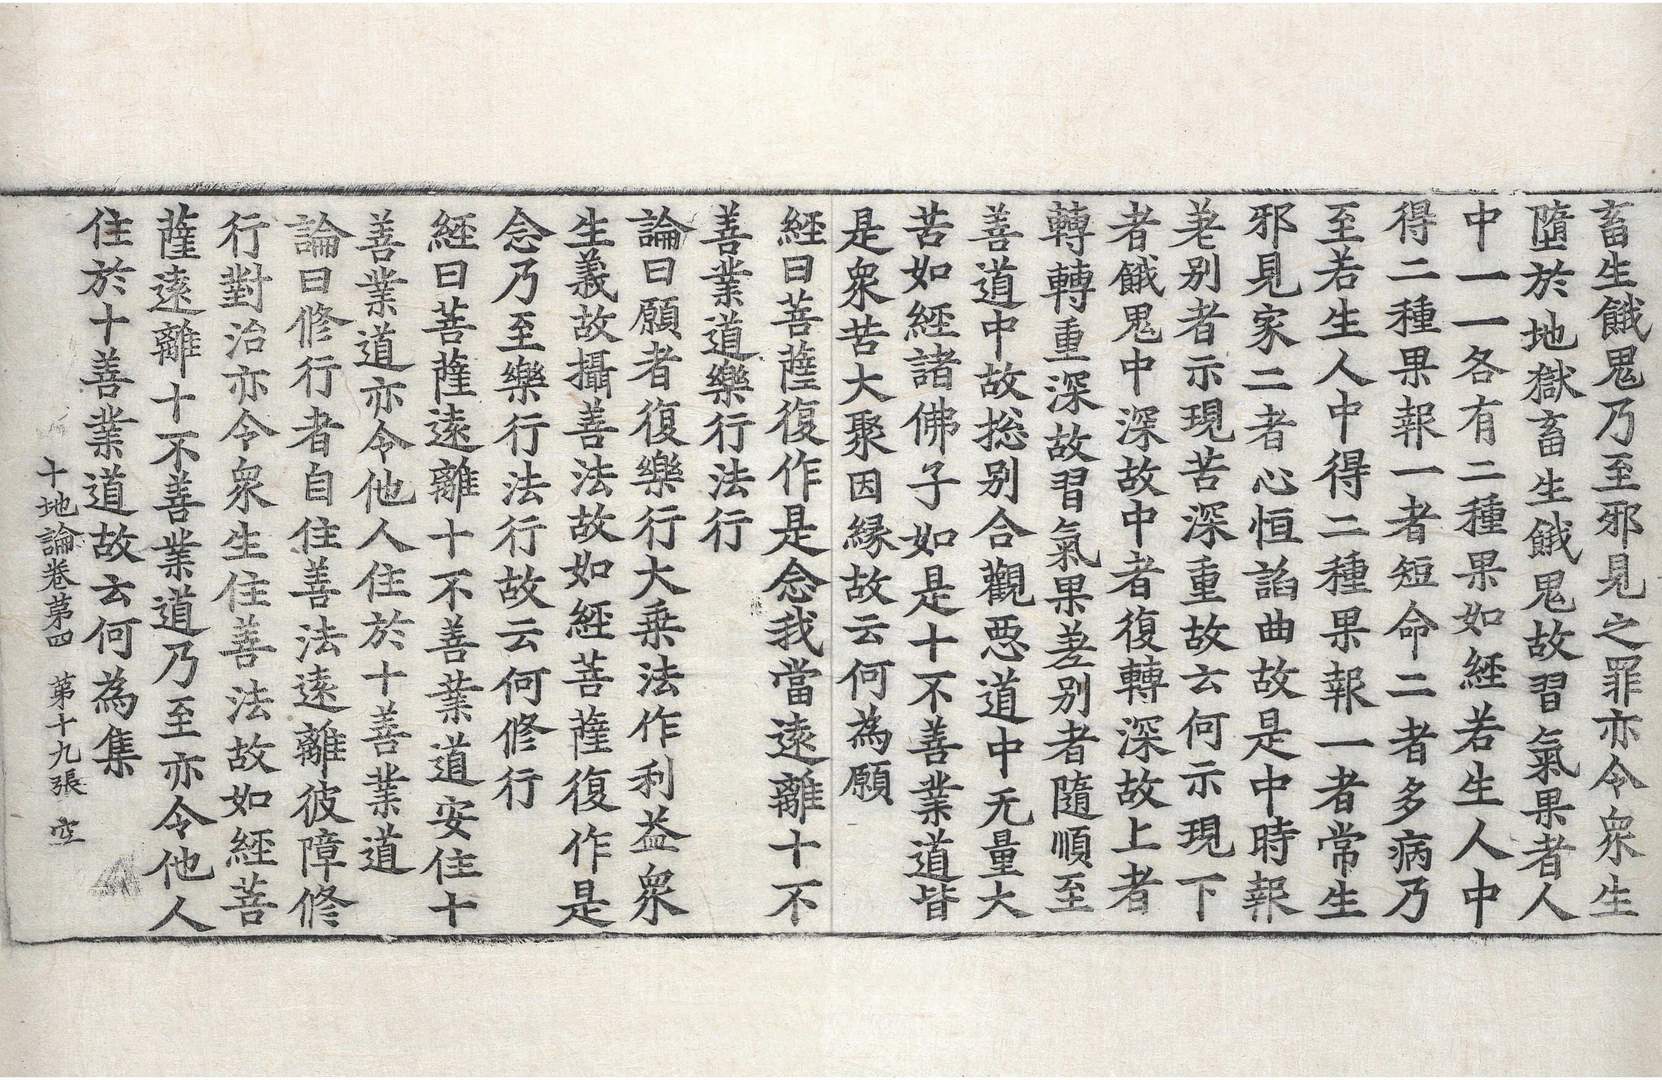 畜生餓鬼乃至邪見之罪亦令衆生
墮於地獄畜生餓鬼故習氣果者人
中一一各有二種果如經若生人中
得二種果報一者短命二者多病乃
至若生人中得二種果報一者常生
邪見家二者心恒諂曲故是中時報
差别者示現苦深重故云何示現下
者餓鬼中深故中者復轉深故上者
轉轉重深故習氣果差别者隨順至
善道中故総别合觀惡道中无量大
苦如經諸佛子如是十不善業道皆
是衆苦大聚因縁故云何為願
經曰菩薩復作是念我當遠離十不
善業道樂行法行
論曰願者復樂行大乗法作利益衆
生義故攝善法故如經菩薩復作是
念乃至樂行法行故云何修行
經曰菩薩遠離十不善業道安住十
善業道亦令他人住於十善業道
論曰修行者自住善法遠離彼障修
行對治亦令衆生住善法故如經菩
薩遠離十不善業道乃至亦令他人
住於十善業道故云何為集
十地論卷第四　第十九張　空